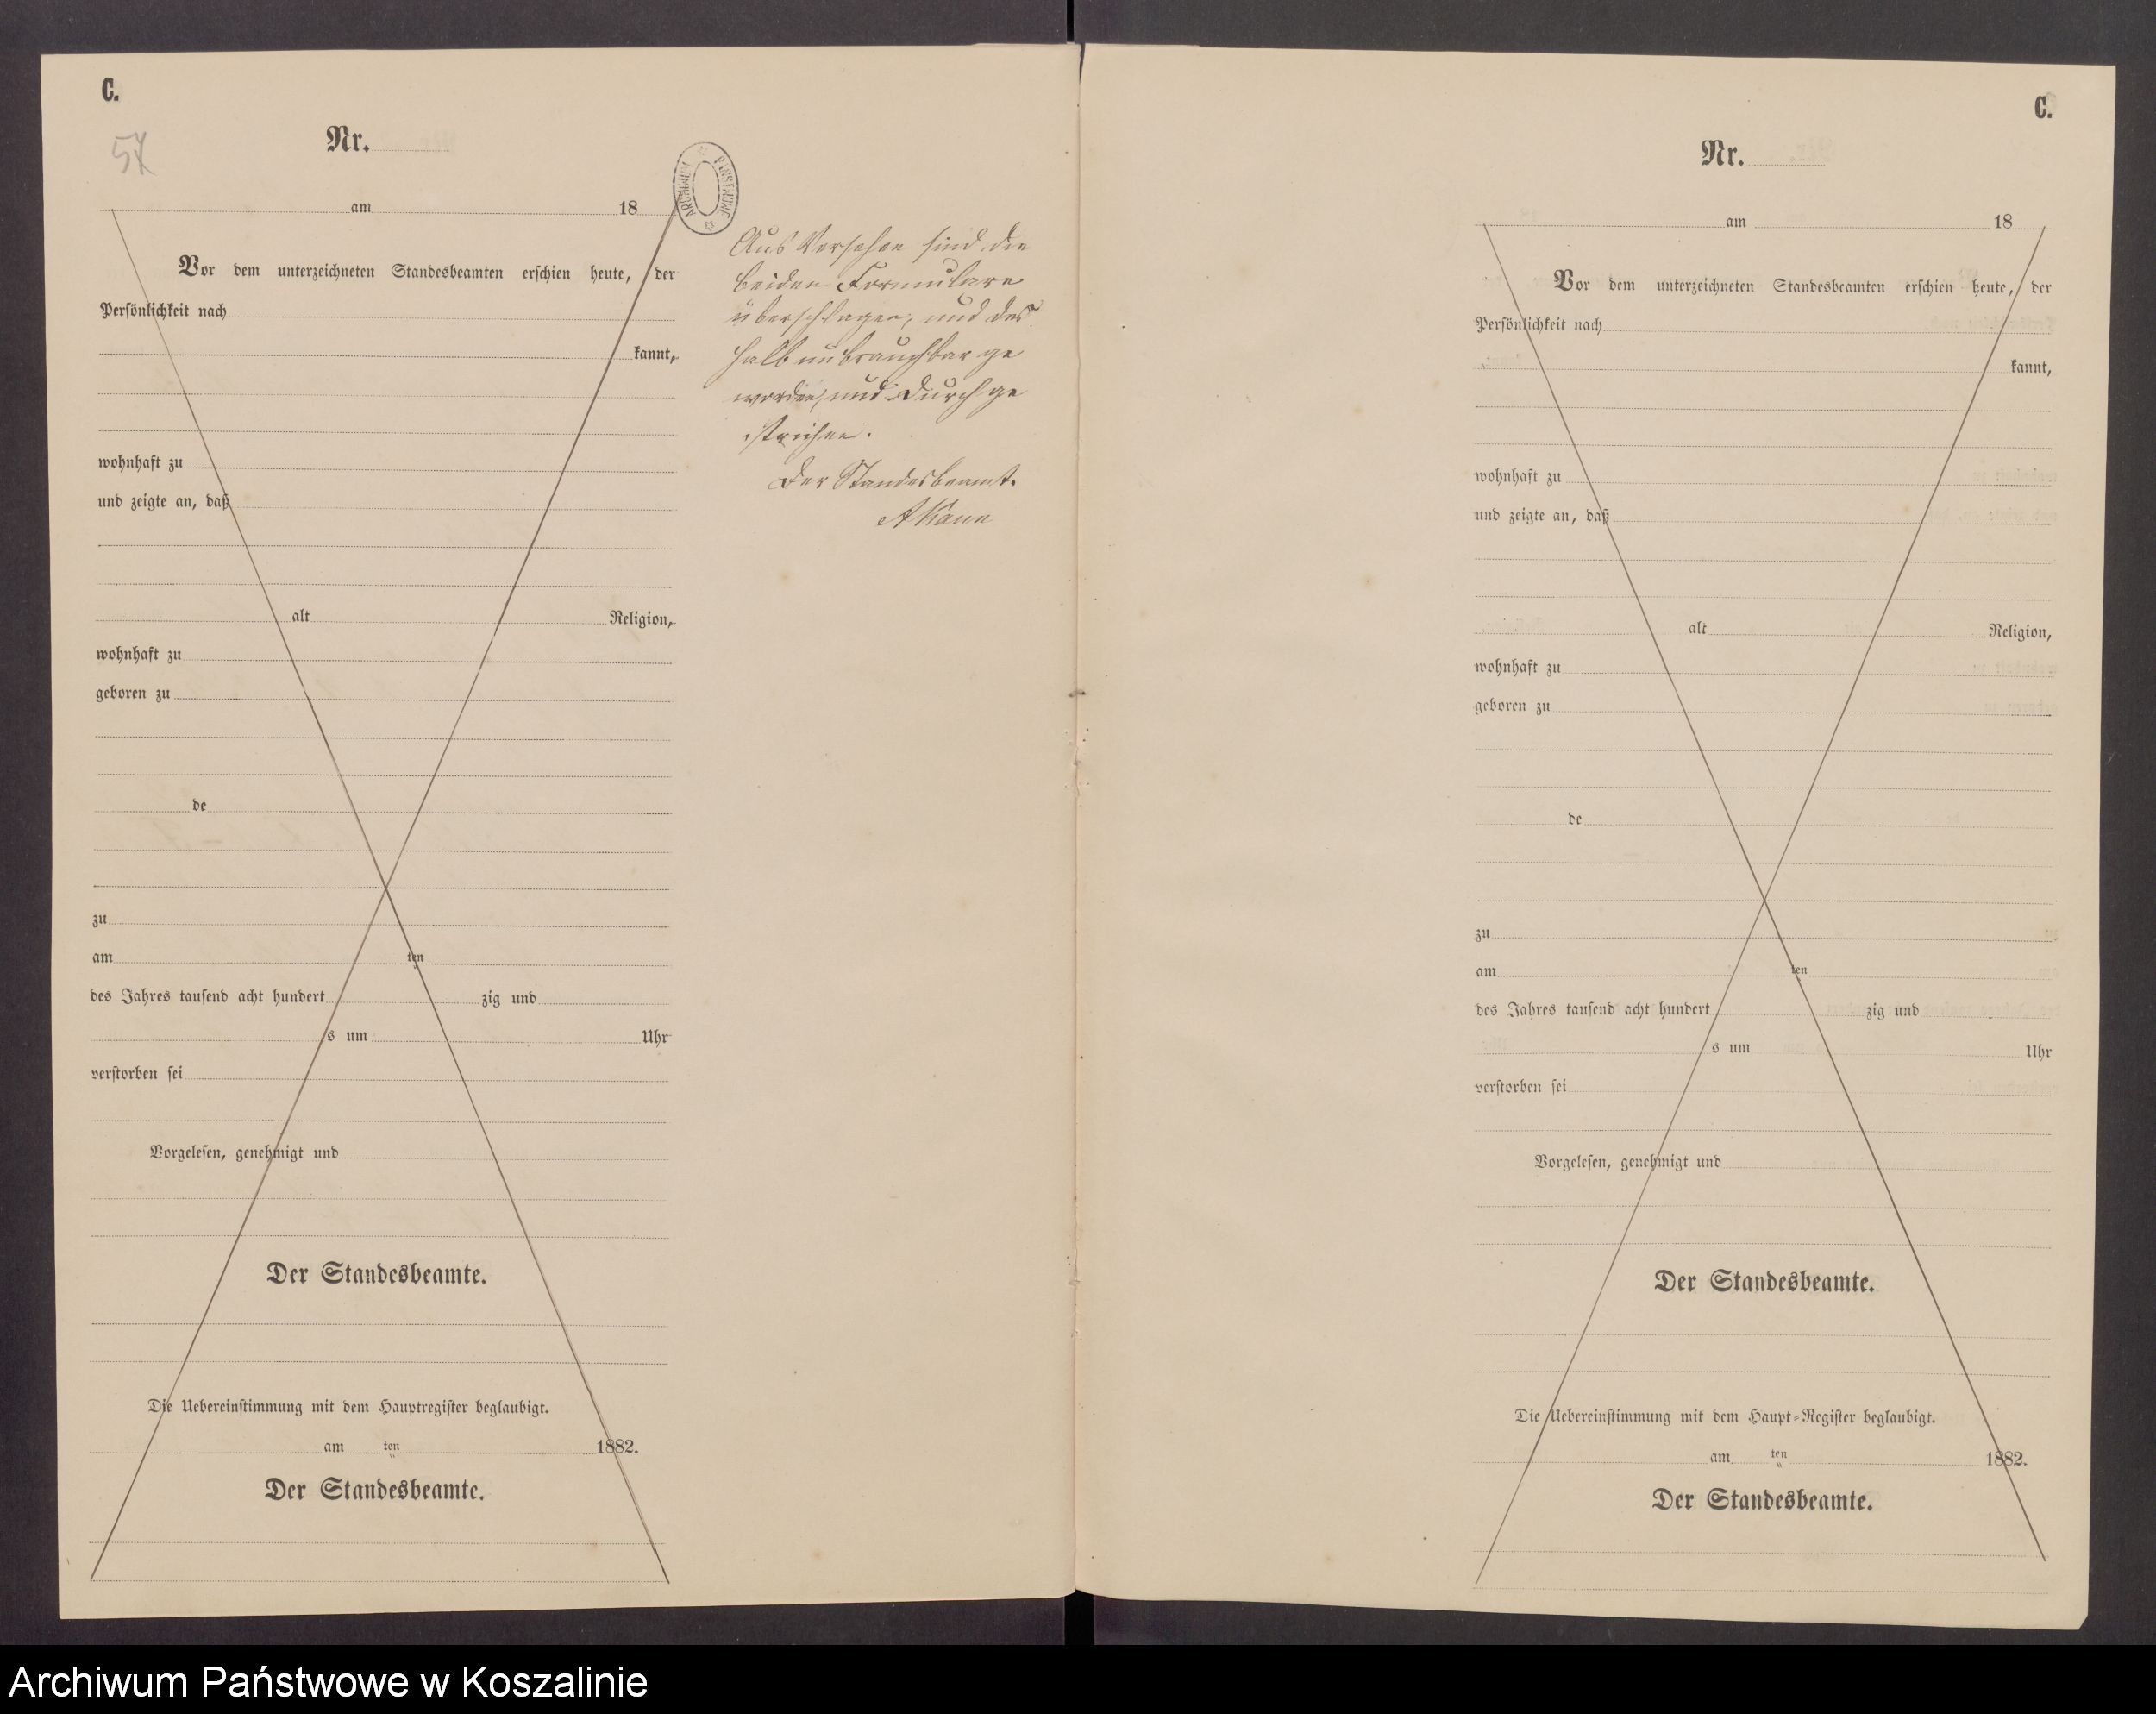 C.
57
Nr.
ARCHIWUM PAŃSTWOWE
am 18
Vor dem unterzeichneten Standesbeamten erschien heute, der
Persönlichkeit nach
kannt,
wohnhaft zu
und zeigte an, daß
alt Religion,
wohnhaft zu
geboren zu
de
zu
am ten
des Jahres tausend acht hundert zig und
s um Uhr
verstorben sei
Vorgelesen, genehmigt und
Der Standesbeamte.
Die Uebereinstimmung mit dem Hauptregister beglaubigt.
am ten 1882.
Der Standesbeamte.
Aus Versehen sind die
beiden Formulare
überschlagen, und des
halb unbrauchbar ge
worden, und durchge
strichen.
Der Standesbeamt.
C.
Nr.
am 18
Vor dem unterzeichneten Standesbeamten erschien heute, der
Persönlichkeit nach
kannt,
wohnhaft zu
und zeigte an, daß
alt Religion,
wohnhaft zu
geboren zu
de
zu
am ten
des Jahres tausend acht hundert zig und
s um Uhr
verstorben sei
Vorgelesen, genehmigt und
Der Standesbeamte.
Die Uebereinstimmung mit dem Haupt-Register beglaubigt.
am ten 1882.
Der Standesbeamte.
Archiwum Państwowe w Koszalinie